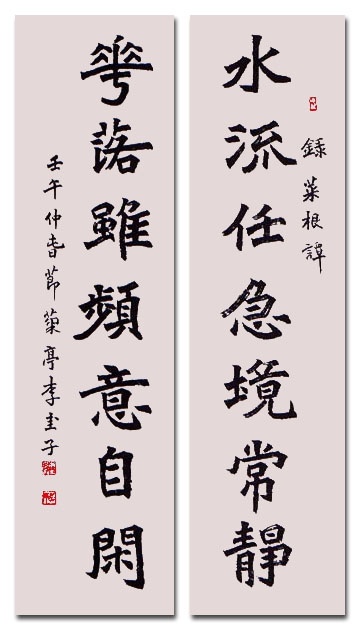 水流任急境常靜
錄菜根譚
華落雖頻意自閑
壬午仲春節菊亭李圭子